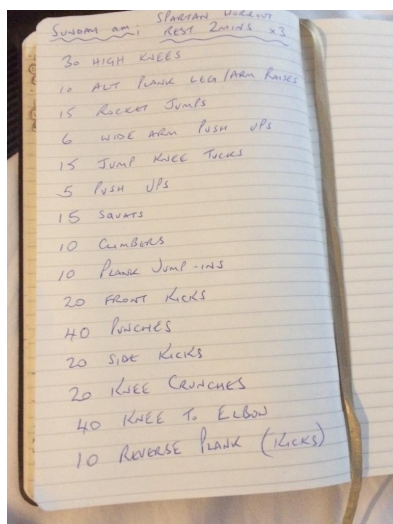 SPARTAN WORKOUT
SUNDAY am: REST 2MINS x3
30 HIGH KNEES
10 ALT PLANK LEG/ARM RAISES
15 ROCKET JUMPS
6 WIDE ARM PUSH UPS
15 JUMP KNEE TUCKS
5 PUSH UPS
15 SQUATS
10 CLIMBERS
10 PLANK JUMP-INS
20 FRONT KICKS
40 PUNCHES
20 SIDE KICKS
20 KNEE CRUNCHES
40 KNEE TO ELBOW
10 REVERSE PLANK (KICKS)